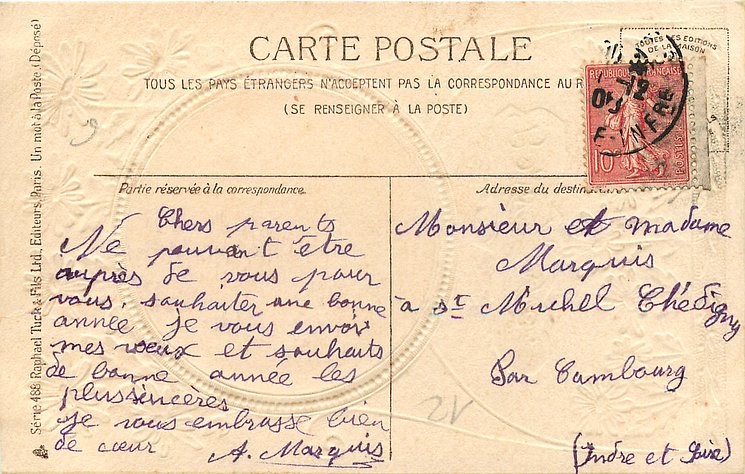 CARTE POSTALE
TOUS LES PAYS ÉTRANGERS N'ACCEPTENT PAS LA CORRESPONDANCE AU
(SE RENSEIGNER À LA POSTE)
TOUTES LES EDITIONS
DE LA MAISON
REPUBLIQUE FRANÇAISE
10
POSTES
Partie réservée à la correspondance.
Chers parents
Ne pouvant être
auprès de vous pour
vous souhaiter une bonne
année je vous envoi
mes voeux et souhaits
de bonne année les
plus sincères
je vous embrasse bien
de cœur A. Marquis
Adresse du destin
Monsieur et madame
Marquis
à St Michel Chédigny
Par Cambourg
(Indre et Loire)
21
Série 488 Raphael Tuck & Fils Ltd., Editeurs, Paris. Un mot à la Poste. (Déposé)